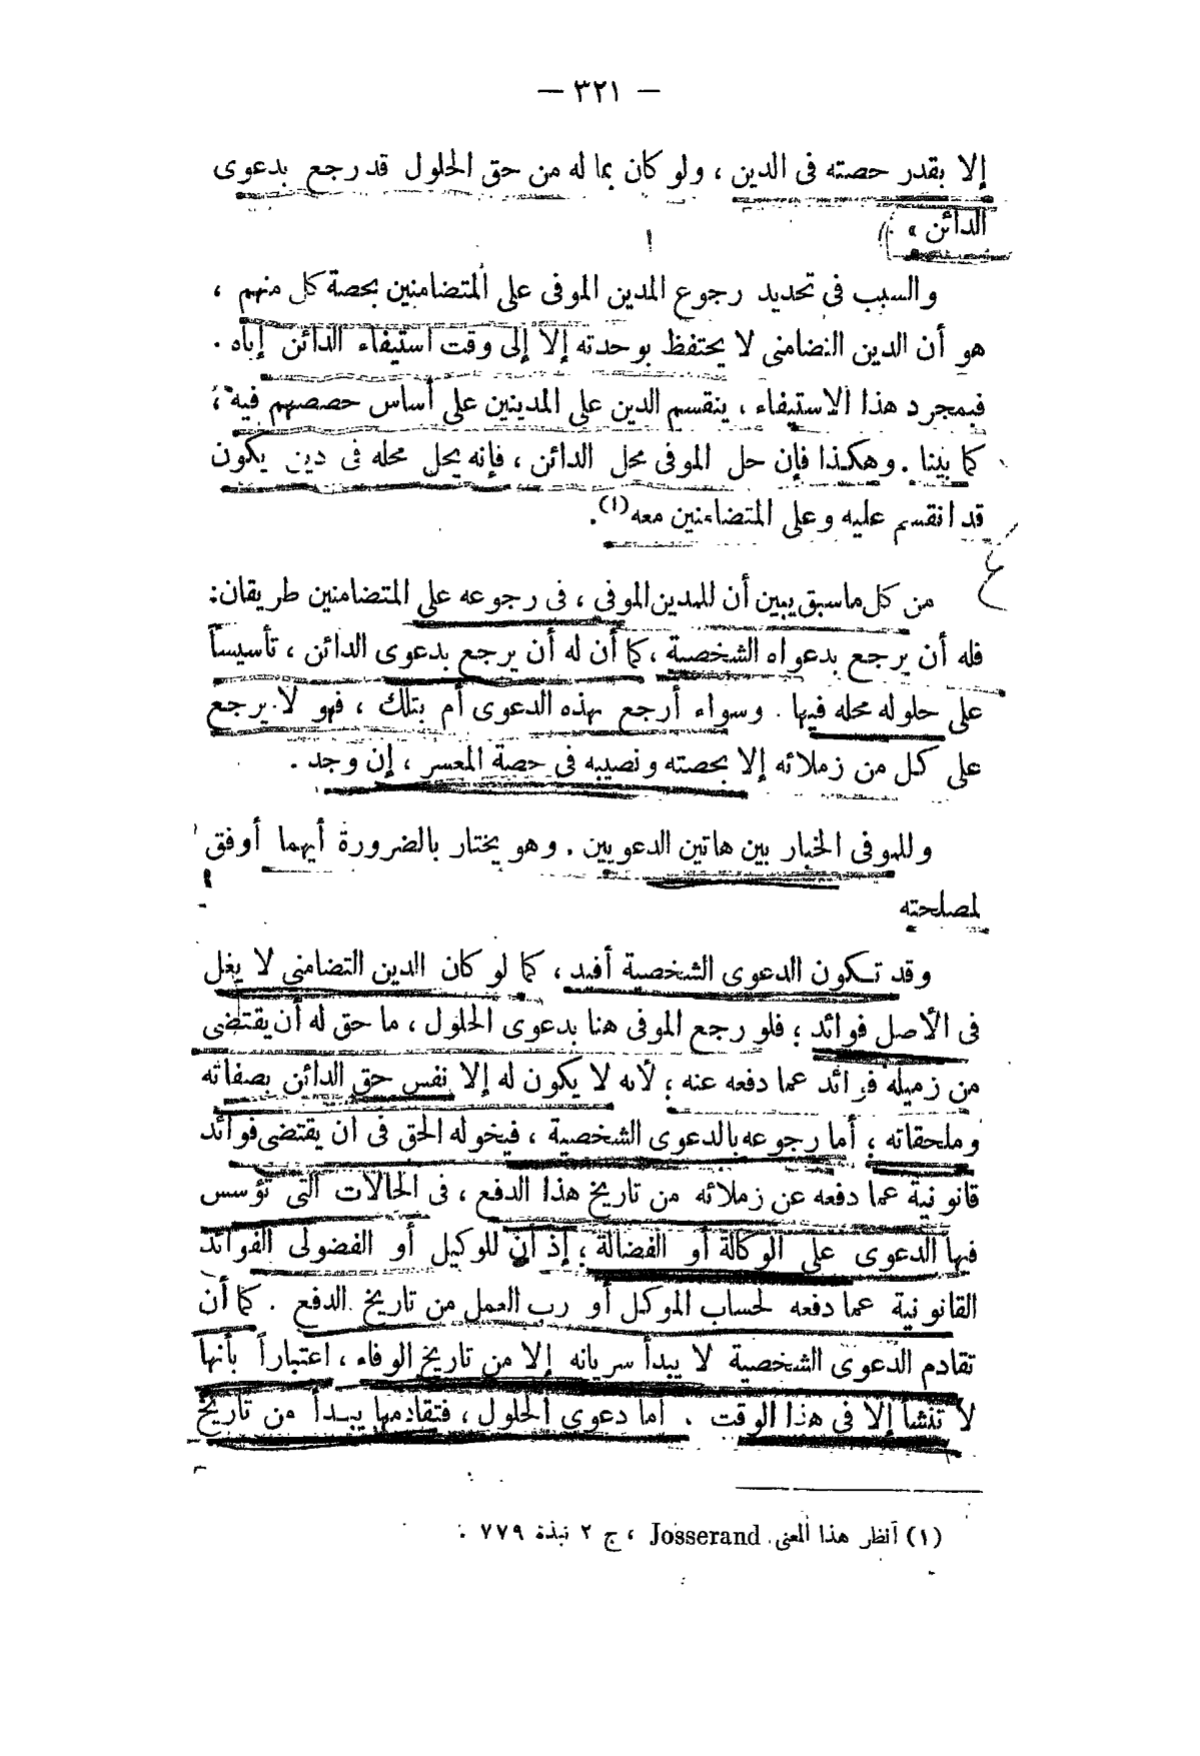 — ٣٢١ —
إلا بقدر حصته فى الدين ، ولو كان بما له من حق الحلول قد رجع بدعوى
الدائن »
والسبب فى تحديد رجوع المدين الموفى على المتضامنين بحصة كل منهم ،
هو أن الدين التضامنى لا يحتفظ بوحدته إلا إلى وقت استيفاء الدائن إياه .
فبمجرد هذا الاستيفاء ، ينقسم الدين على المدينين على أساس حصصهم فيه ،
كما بينا . وهكذا فإن حل الموفى محل الدائن ، فإنه يحل محله فى دين يكون
قد انقسم عليه وعلى المتضامنين معه(١).
من كل ماسبق يبين أن للمدين الموفى ، فى رجوعه على المتضامنين طريقان:
فله أن يرجع بدعواه الشخصية ، كما أن له أن يرجع بدعوى الدائن ، تأسيساً
على حلوله محله فيها . وسواء أرجع بهذه الدعوى أم بتلك ، فهو لا يرجع
على كل من زملائه إلا بحصته ونصيبه فى حصة المعسر ، إن وجد .
وللموفى الخيار بين هاتين الدعويين . وهو يختار بالضرورة أيهما أوفق
لمصلحته
وقد تكون الدعوى الشخصية أفيد ، كما لو كان الدين التضامنى لا يغل
فى الأصل فوائد ؛ فلو رجع الموفى هنا بدعوى الحلول ، ما حق له أن يقتضى
من زميله فوائد عما دفعه عنه ؛ لأنه لا يكون له إلا نفس حق الدائن بصفاته
وملحقاته ؛ أما رجوعه بالدعوى الشخصية ، فيخوله الحق فى ان يقتضى فوائد
قانونية عما دفعه عن زملائه من تاريخ هذا الدفع ، فى الحالات التى تؤسس
فيها الدعوى على الوكالة أو الفضالة ؛ إذ أن للوكيل أو الفضولى الفوائد
القانونية عما دفعه لحساب الموكل أو رب العمل من تاريخ الدفع . كما أن
تقادم الدعوى الشخصية لا يبدأ سريانه إلا من تاريخ الوفاء ، اعتباراً بأنها
لا تنشأ إلا فى هذا الوقت . أما دعوى الحلول ، فتقادمها يبدأ من تاريخ
(١) أنظر هذا المعنى Josserand ، ج ٢ نبذة ٧٧٩ .